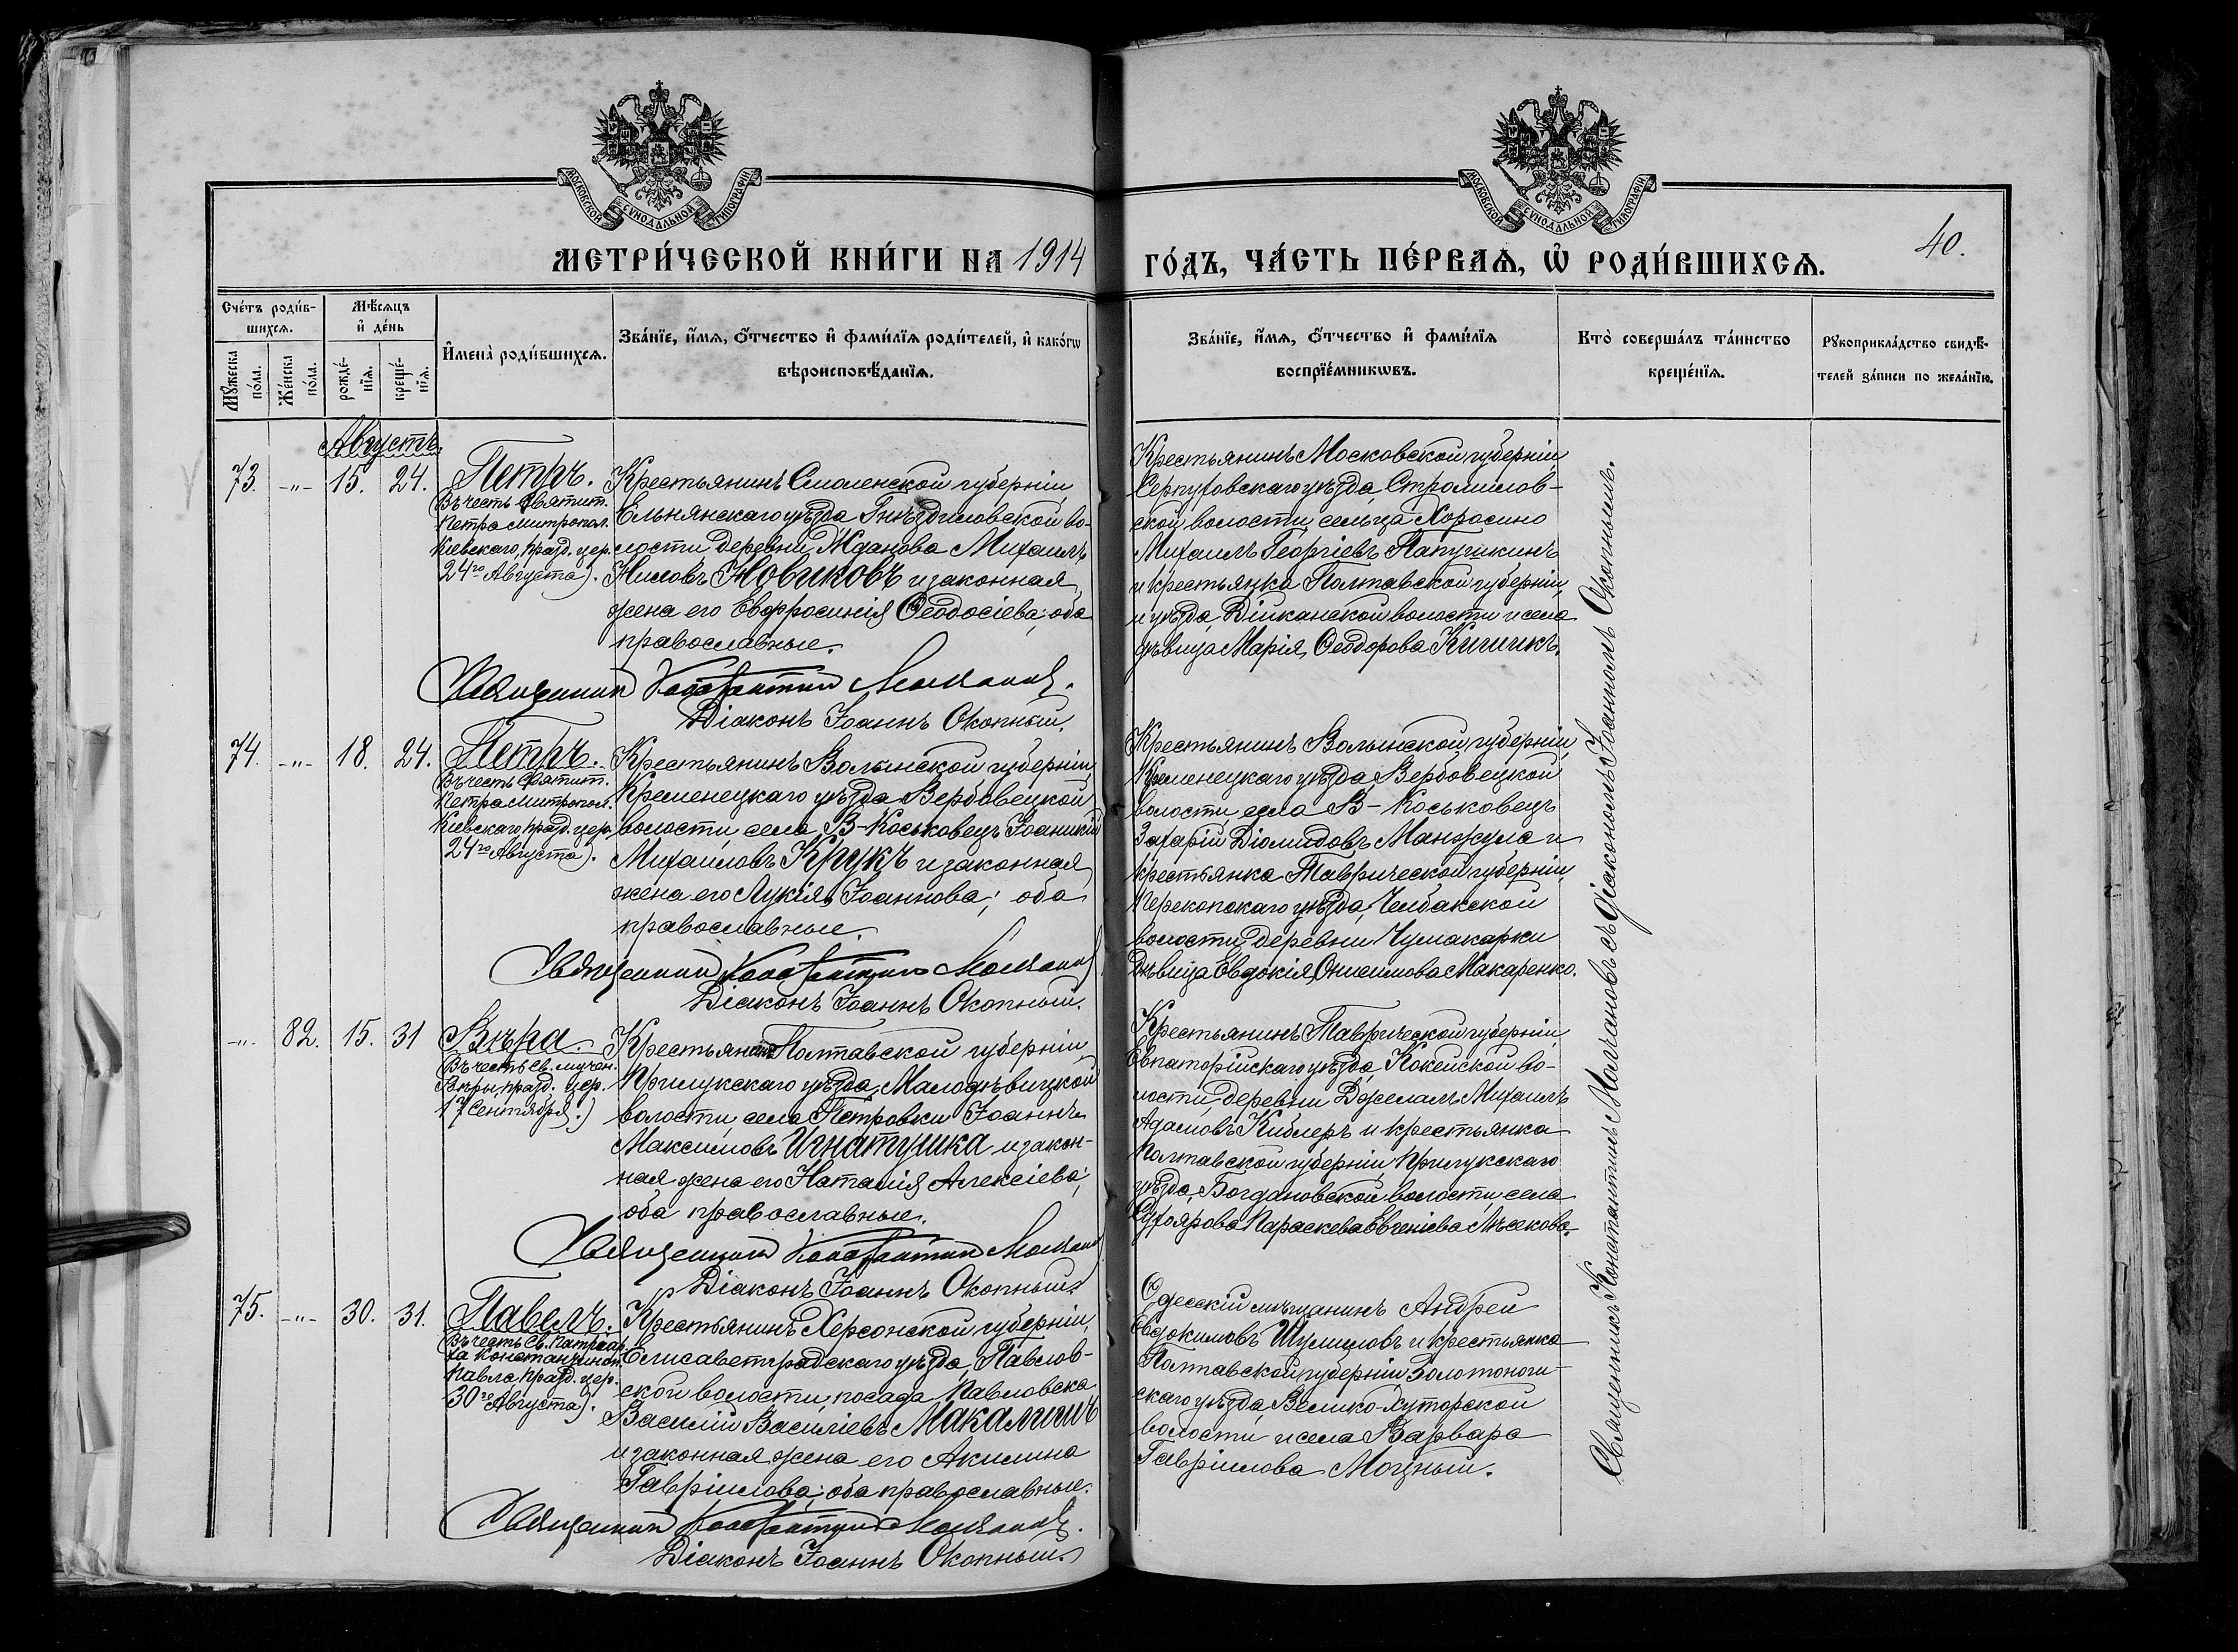 МОСКОВСКОЙ СѴНОДАЛЬНОЙ ТИПОГРАФІИ
МОСКОВСКОЙ СѴНОДАЛЬНОЙ ТИПОГРАФІИ
МЕТРИ́ЧЕСКОЙ КНИ́ГИ НА 1914
ГО́ДЪ, ЧА́СТЬ ПЕ́РВАѦ, Ѡ҆ РОДИ́ВШИХСѦ.
40.
Сче́тъ роди́в-
шихсѧ.
Мѣ́сѧцъ
и҆ де́нь
Мꙋ́жеска
по́ла.
Же́нска
по́ла.
рожде́-
нїѧ.
креще́-
нїѧ.
И҆мена̀ роди́вшихсѧ.
Зва́нїе, и҆́мѧ, ѻ҆́тчество и҆ фами́лїѧ роди́телей, и҆ како́гѡ
вѣроисповѣ́данїѧ.
Зва́нїе, и҆́мѧ, ѻ҆́тчество и҆ фами́лїѧ
воспрїе́мникѡвъ.
Кто̀ соверша́лъ та́инство
креще́нїѧ.
Рꙋкоприкла́дство свидѣ́-
телей за́писи по жела́нїю.
Августъ.
73. -"- 15. 24. Петръ.
(Въ честь Святит.
Петра Митропол.
Кіевскаго, празд. цер.
24го Августа).
Крестьянинъ Смоленской губерніи,
Ельнянскаго уѣзда, Гнѣздиловской во-
лости, деревни Жданова Михаилъ
Ниловъ Новиковъ и законная
жена его Евфросинія Ѳеодосіева; оба
православные.
Священникъ Константинъ Молчановъ.
Діаконъ Іоаннъ Окопный.
Крестьянинъ Московской губерніи,
Серпуховскаго уѣзда, Стромилов-
ской волости, сельца Хоросино
Михаилъ Георгіевъ Папушкинъ
и крестьянка Полтавской губерніи,
и уѣзда, Диканской волости и села
дѣвица Марія Ѳеодорова Кигичкъ.
74. -"- 18. 24. Петръ.
(Въ честь Святит.
Петра Митропол.
Кіевскаго, празд. цер.
24го Августа).
Крестьянинъ Волынской губерніи,
Кременецкаго уѣзда Вербовецкой
волости, села В-Коськовецъ Іоанникій
Михайловъ Крукъ и законная
жена его Лукія Іоаннова; оба
православные.
Священникъ Константинъ Молчановъ
Діаконъ Іоаннъ Окопный.
Крестьянинъ Волынской губерніи,
Кременецкаго уѣзда, Вербовецкой
волости, села В-Коськовецъ
Захарій Діомидовъ Манжула и
крестьянка Таврической губерніи,
Перекопскаго уѣзда, Чалбакской
волости, деревни Чумакарки
дѣвица Евдокія Онисимова Макаренко.
-"- 82. 15. 31 Вѣра.
(Въ честь Св. мучен.
Вѣры, празд. цер.
17 Сентября.)
Крестьянинъ Полтавской губерніи,
Прилукскаго уѣзда, Малодѣвицкой
волости, села Петровки Іоаннъ
Максимовъ Игнатушка и закон-
ная жена его Наталія Алексіева;
оба православные.
Священникъ Константинъ Молчановъ
Діаконъ Іоаннъ Окопный.
Крестьянинъ Таврической губерніи,
Евпаторійскаго уѣзда, Кокейской во-
лости, деревни Джелалъ Михаилъ
Адамовъ Киблеръ и крестьянка
Полтавской губерніи, Прилукскаго
уѣзда, Богдановской волости, села
Сухоярова Параскева Евгеніева Лѣсокова.
75. -"- 30. 31. Павелъ.
(Въ честь Св. Патріар-
ха Константиноп.
Павла, празд. цер.
30го Августа).
Крестьянинъ Херсонской губерніи,
Елисаветградскаго уѣзда, Павлов-
ской волости, посада Павловска
Василій Василіевъ Макалишъ
и законная жена его Акилина
Гавріилова; оба православные.
Священникъ Константинъ Молчановъ.
Діаконъ Іоаннъ Окопный.
Одесскій мѣщанинъ Андрей
Евдокимовъ Шумиловъ и крестьянка
Полтавской губерніи Золотонош-
скаго уѣзда, Велико-Хуторской
волости и села Варвара
Гавріилова Моцный.
Священникъ Константинъ Молчановъ съ діакономъ Іоанномъ Окопнымъ.